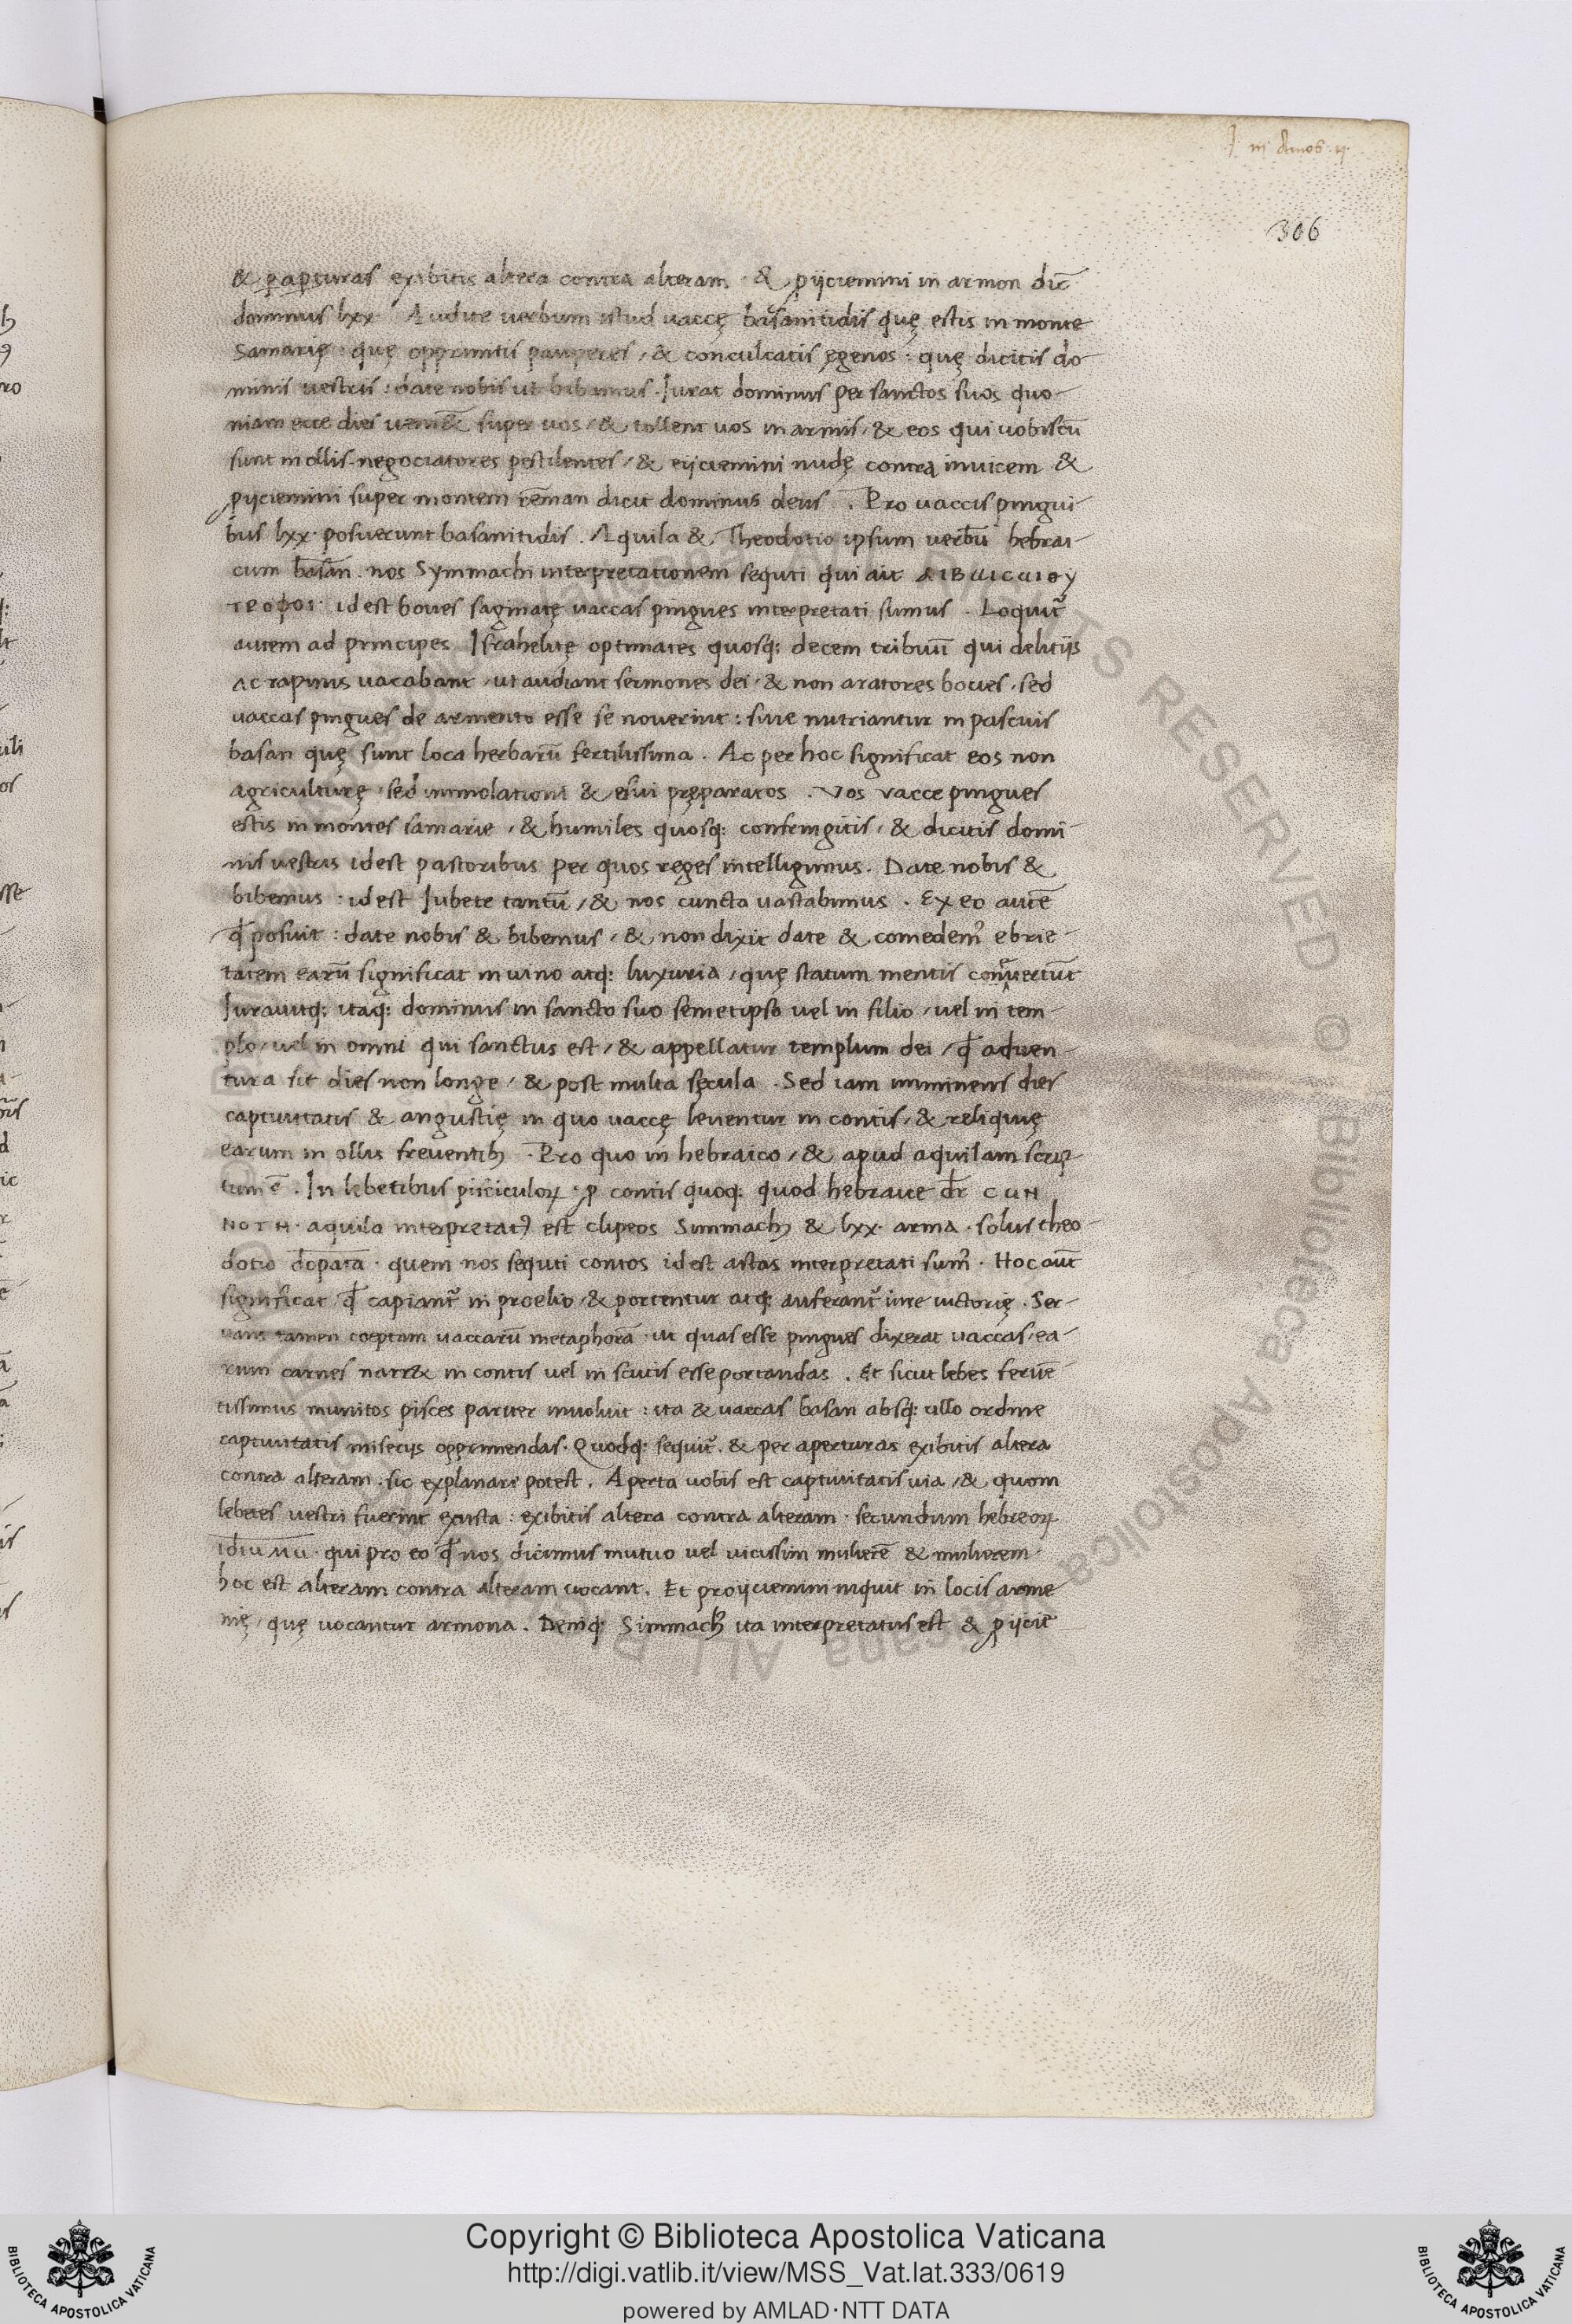 I. in Amos. ij.
306
& p̲ap̲turas exibitis altera contra alteram · & ꝓijciemini in armon dic̄
dominus lxx. Audite uerbum istud uaccę basanitidis quę estis in monte
Samarię : quę opprimitis pauperes / & conculcatis egenos : quę dicitis do-
minis uestris : date nobis ut bibamus . Jurat dominus per sanctos suos quo-
niam ecce dies ueniē& super uos / & tollent uos in armis / & eos qui uobiscū
sunt in ollis negociatores pestilentes / & eijciemini nudę contra inuicem &
ꝓijciemini super montem rēman dicit dominus deus . Pro uaccis pingui-
bus lxx. posuerunt basanitidis . Aquila & Theodotio ipsum uerbū hebrai-
cum basan . nos Symmachi interpretationem sequti qui ait ΔΙΒωΙCωΙΟΥ
ΤΡΟΦΟΙ· idest boues saginatę uaccas pingues interpretati sumus . Loquit᷑
autem ad principes Israhelitę optimates quosq; decem tribuū qui delitijs
ac rapinis uacabant / ut audiant sermones dei / & non aratores boues / sed
uaccas pingues de armento esse se nouerint : siue nutriantur in pascuis
basan quę sunt loca herbarū fertilissima . Ac per hoc significat eos non
agriculturę / sed immolationi & esui pręparatos . Vos vacce pingues
estis in montes samarie / & humiles quosq; confringitis / & dicitis domi-
nis uestris idest pastoribus per quos reges intelligimus . Date nobis &
bibemus : idest Jubete tantū / & nos cuncta uastabimus . Ex eo autē
qđ posuit : date nobis & bibemus / & non dixit date & comedem᷒ ebrie-
tatem earū significat in uino atq; luxuria / quę statum mentis conuertūt
Jurauitq; itaq; dominus in sancto suo semetipso uel in filio / uel in tem-
plo / uel in omni qui sanctus est / & appellatur templum dei / qđ aduen-
tura sit dies non longe / & post multa sęcula . Sed iam imminens dies
captiuitatis & angustię in quo uaccę leuentur in contis / & reliquię
earum in ollis feruentib; . Pro quo in hebraico / & apud aquilam scrip-
tum ē . In lebetibus pisciculoꝝ . ꝓ contis quoq; quod hebraice dr̄ CUN
NOTH · aquila interpretatꝰ est clipeos Simmachꝰ & lxx. arma . solus theo-
dotio dopata · quem nos sequti contos idest astas interpretati sum᷒ . Hoc aūt
significat qđ capiant᷑ in proelio / & portentur atq; auferant᷑ iure uictorię . Ser-
uans tamen coeptam uaccarū metaphorā · ut quas esse pingues dixerat uaccas / ea-
rum carnes narr& in contis uel in scutis esse portandas . Et sicut lebes feruē-
tissimus munitos pisces pariter inuoluit : ita & uaccas basan absq; ullo ordine
captiuitatis miserijs opprimendas . Quodq; sequit᷑ . & per aperturas exibitis altera
contra alteram . sic explanari potest . Aperta uobis est captiuitatis uia / & quom
lebetes uestri fuerint exusta : exibitis altera contra alteram · secundum hebreoꝝ
idiuma · qui pro eo qđ nos dicimus mutuo uel uicissim mulierē & mulierem
hoc est alteram contra alteram uocant . Et proijciemini inquit in locis arme-
nię / quę uocantur armona . Deniq; Simmachꝰ ita interpretatus est & ꝓijciē
Copyright © Biblioteca Apostolica Vaticana
http://digi.vatlib.it/view/MSS_Vat.lat.333/0619
powered by AMLAD·NTT DATA